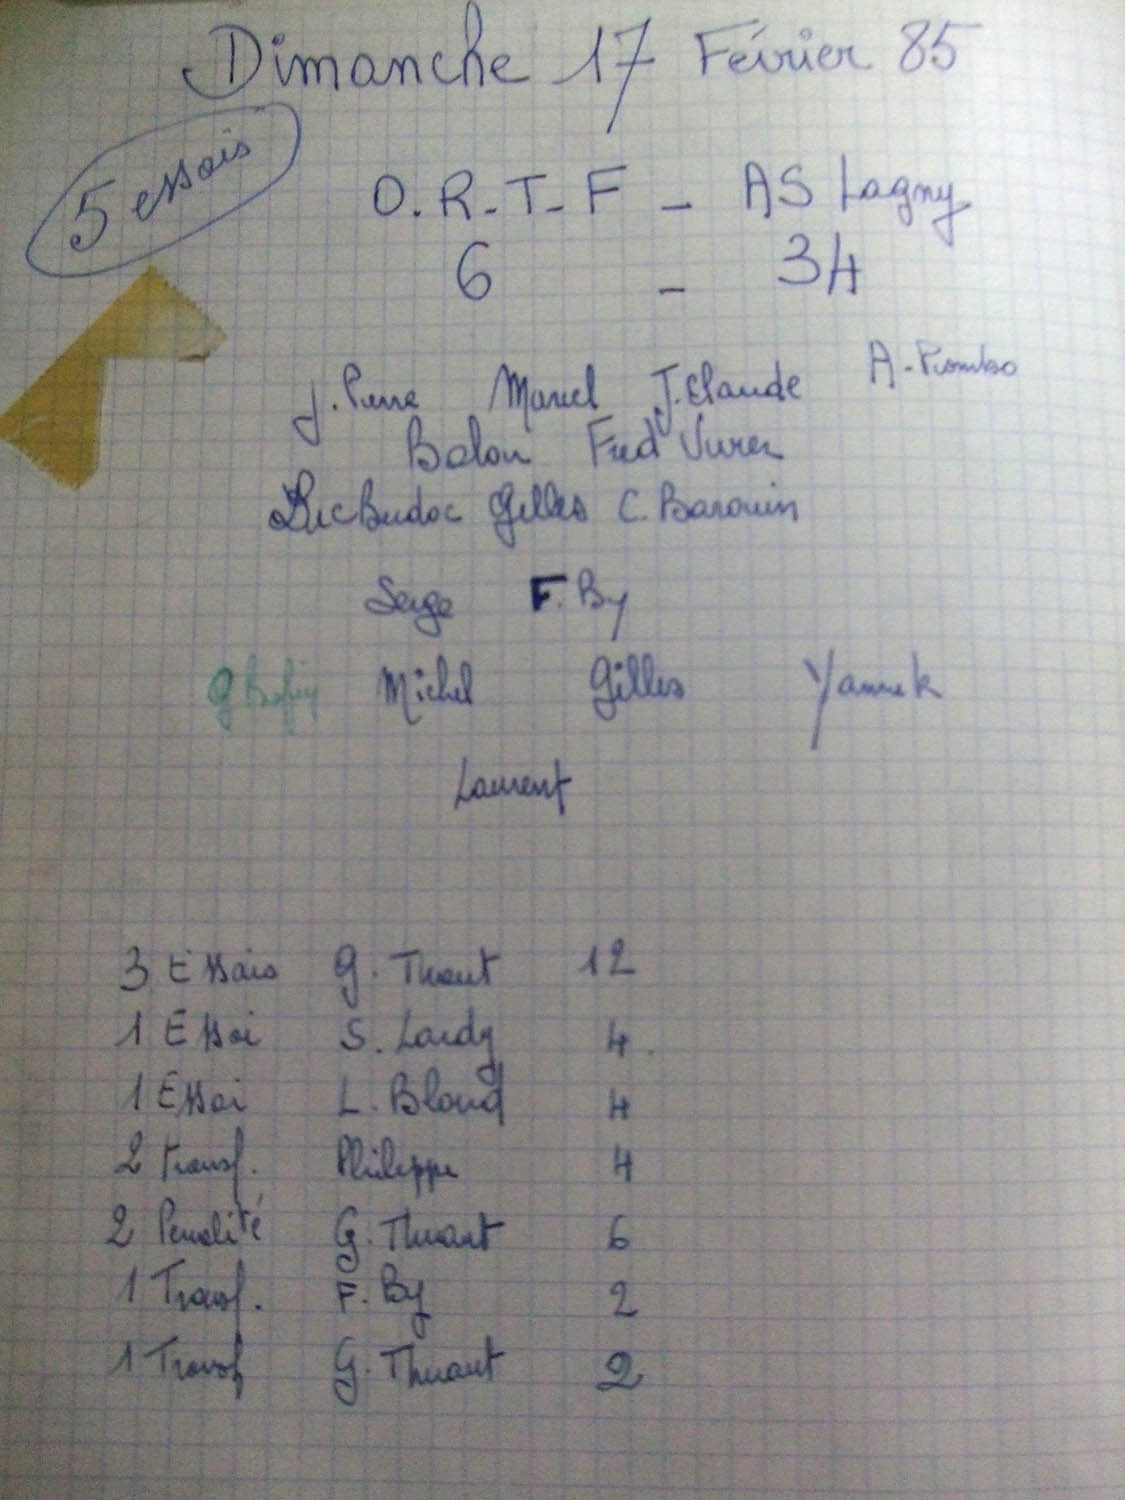 Dimanche 17 Février 85
5 essais
O.R-T-F - AS Lagny
6 - 34
J. Pierre Marcel J.Claude A.
Fred
Gilles C. Barouin
Serge F. By
Michel Gilles Yannick
Laurent
3 Essais G. Thuaut 12
1 Essai S. Lardy 4
1 Essai L. Bloud 4
2 transf. Philippe 4
2 Penalité G. Thuaut 6
1 Transf. F. By 2
1 Transf G. Thuaut 2